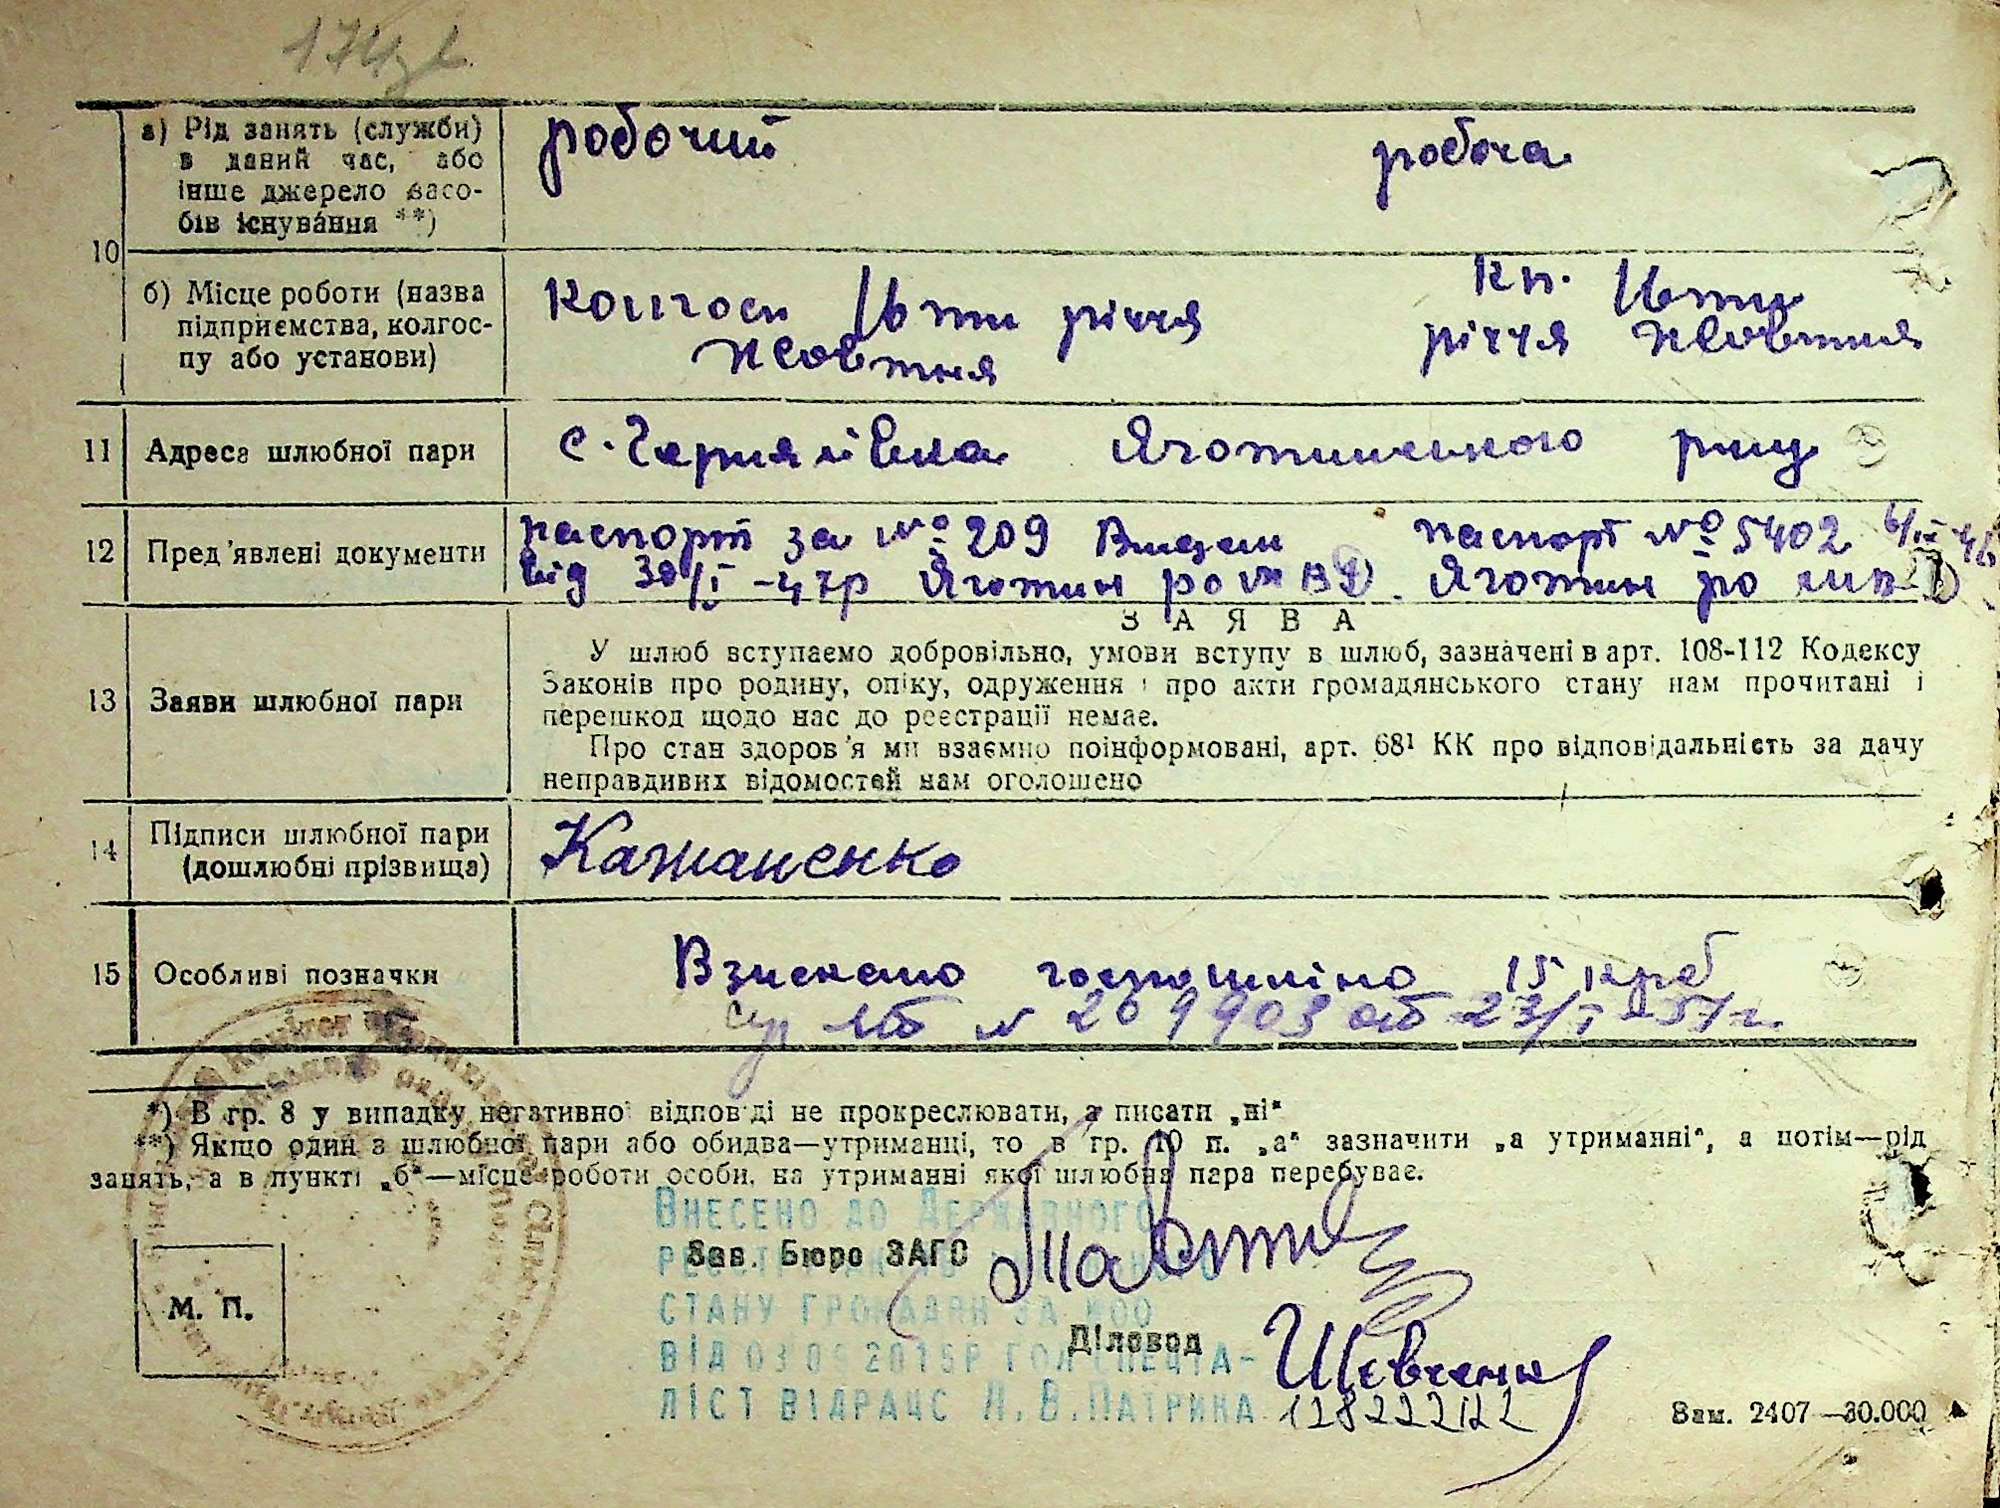 174
а) Рід занять (служби) в даний час, або інше джерело засобів існува́ння **)
робочий
робоча
10
б) Місце роботи (назва підприємства, колгоспу або установи)
Колгосп 16ти річчя
Жовтня
Кп. 16ти
річчя Жовтня
11 Адреса шлюбної пари
с. Черняхівка Яготинського р-ну
12 Пред'явлені документи
паспорт за № 209 Видан
від 30/I-47р Яготин ро МВД
паспорт № 5402 6/IX 46
Яготин ро МВД
13 Заяви шлюбної пари
ЗАЯВА
У шлюб вступаємо добровільно, умови вступу в шлюб, зазначені в арт. 108-112 Кодексу
Законів про родину, опіку, одруження і про акти громадянського стану нам прочитані і
перешкод щодо нас до реєстрації немає.
Про стан здоров'я ми взаємно поінформовані, арт. 68¹ КК про відповідальність за дачу
неправдивих відомостей нам оголошено
14 Підписи шлюбної пари (дошлюбні прізвища)
Кажаненко
15 Особливі позначки
Взискано госпошліно 15 крб
№ 209903 от 23/I-57г.
*) В гр. 8 у випадку негативної відповіді не прокреслювати, а писати „ні“
**) Якщо один з шлюбної пари або обидва—утриманці, то в гр. 10 п. „а“ зазначити „а утриманні“, а потім—рід
занять, а в пункті „б“—місце роботи особи, на утриманні якої шлюбна пара перебуває.
Внесено до Державного
Зав. Бюро ЗАГС
стану громадян за №00
Діловод
Шевченко
від 03 09 2015р гол спеціа-
ліст відрацс Л. В. Патрина 128222122
М. П.
Зам. 2407—30.000